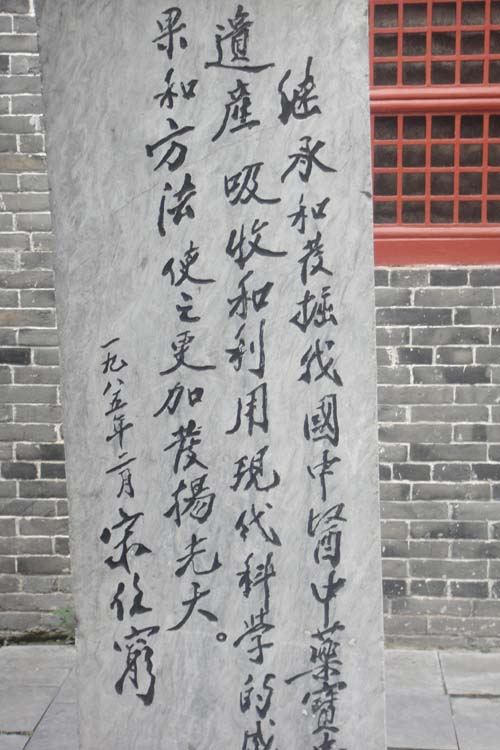 继承和发掘我國中醫中藥寳
遺產吸收和利用現代科学的成
果和方法使之更加發揚光大。
一九八五年二月
宋任窮